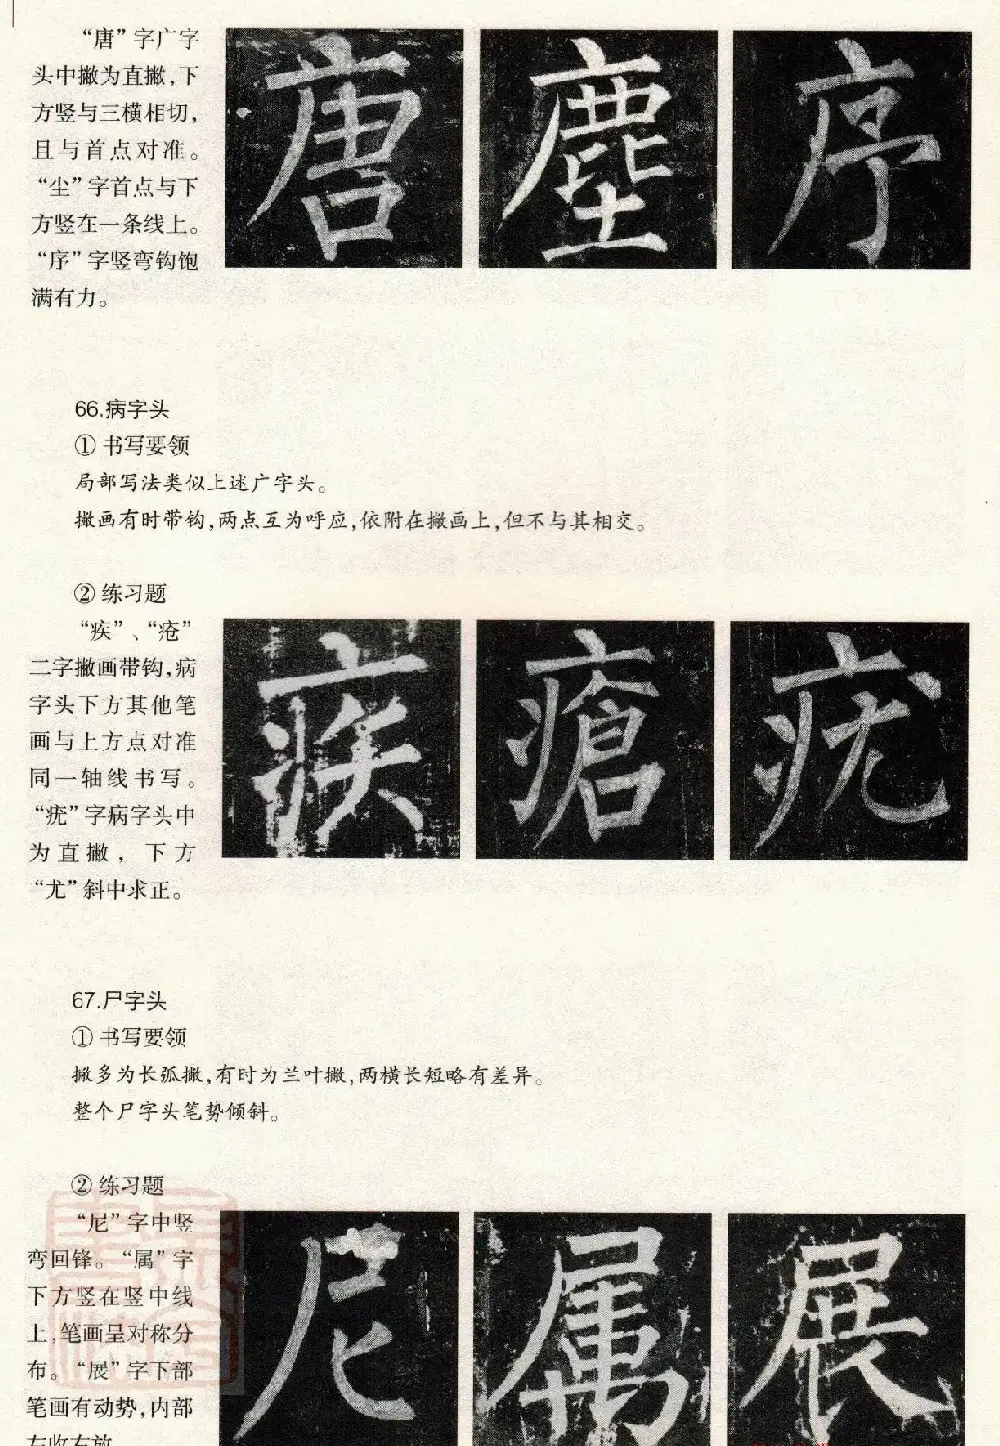 “唐”字广字
头中撇为直撇,下
方竖与三横相切,
且与首点对准。
“尘”字首点与下
方竖在一条线上。
“序”字竖弯钩饱
满有力。
唐 塵 序
66.病字头
① 书写要领
局部写法类似上述广字头。
撇画有时带钩,两点互为呼应,依附在撇画上,但不与其相交。
② 练习题
“疾”、“疮”
二字撇画带钩,病
字头下方其他笔
画与上方点对准
同一轴线书写。
“疣”字病字头中
为直撇,下方
“尤”斜中求正。
疾 瘡 疣
67.尸字头
① 书写要领
撇多为长弧撇,有时为兰叶撇,两横长短略有差异。
整个尸字头笔势倾斜。
② 练习题
“尼”字中竖
弯回锋。“属”字
下方竖在竖中线
上,笔画呈对称分
布。“展”字下部
笔画有动势,内部
左收右放
尼 属 展